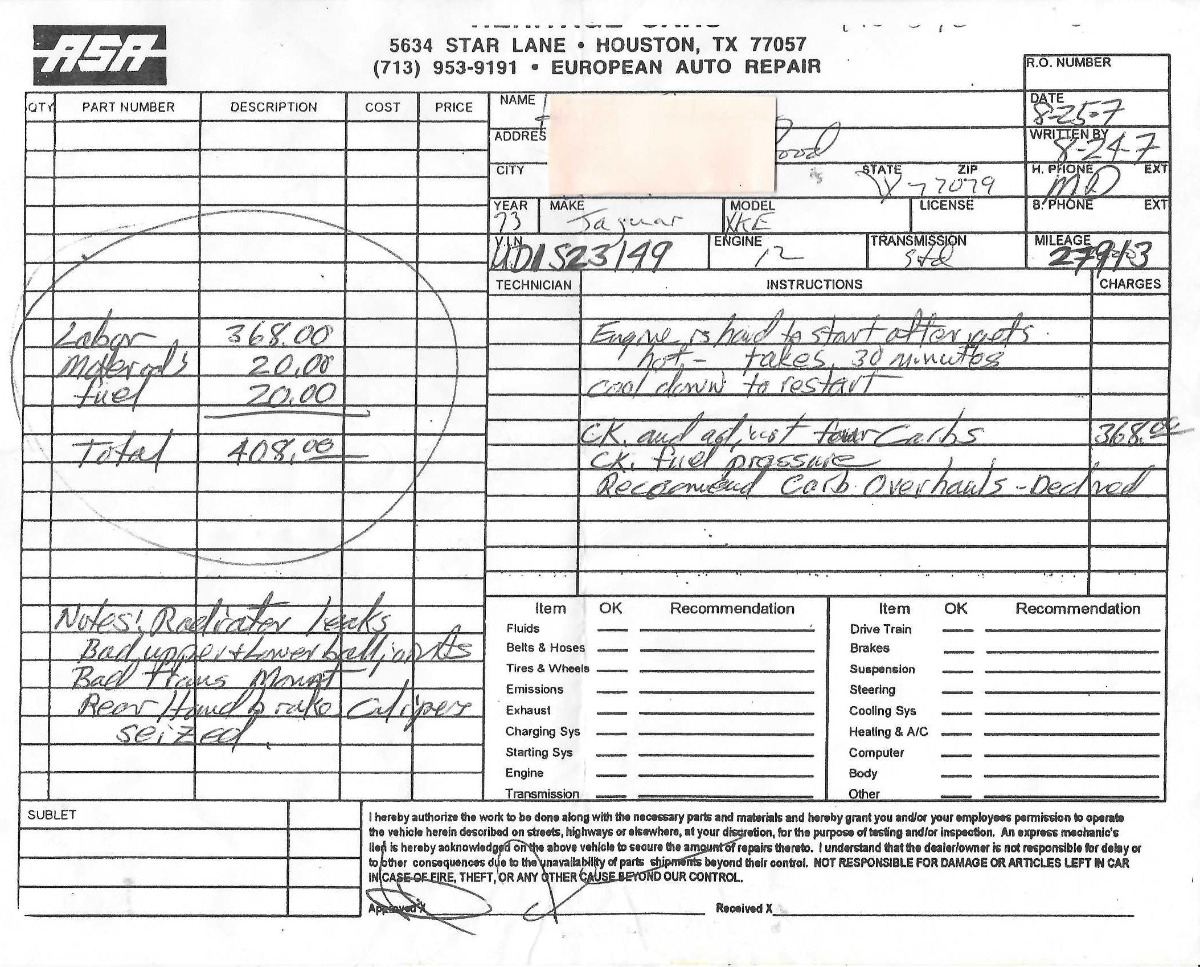 ASA
5634 STAR LANE • HOUSTON, TX 77057
(713) 953-9191 • EUROPEAN AUTO REPAIR
R.O. NUMBER
QTY PART NUMBER DESCRIPTION COST PRICE
NAME
DATE 8-25-7
ADDRES
WRITTEN BY 8-24-7
CITY STATE ZIP 77079
H. PHONE EXT
YEAR 73 MAKE Jaguar MODEL XKE LICENSE
B. PHONE EXT
V.I.N. UD1S23149 ENGINE 12 TRANSMISSION Std MILEAGE 27913
TECHNICIAN INSTRUCTIONS CHARGES
Labor 368.00
Materials 20.00
fuel 20.00
Total 408.00
Engine is hard to start after gets
hot - takes 30 minutes
cool down to restart
CK. and adjust four Carbs 368.00
CK. fuel pressure
Recommend Carb Overhauls - Declined
Notes: Radiator leaks
Bad upper + Lower ball joints
Bad trans Mount
Rear Hand brake Calipers
seized.
Item OK Recommendation
Fluids
Belts & Hoses
Tires & Wheels
Emissions
Exhaust
Charging Sys
Starting Sys
Engine
Transmission
Item OK Recommendation
Drive Train
Brakes
Suspension
Steering
Cooling Sys
Heating & A/C
Computer
Body
Other
SUBLET
I hereby authorize the work to be done along with the necessary parts and materials and hereby grant you and/or your employees permission to operate
the vehicle herein described on streets, highways or elsewhere, at your discretion, for the purpose of testing and/or inspection. An express mechanic's
lien is hereby acknowledged on the above vehicle to secure the amount of repairs thereto. I understand that the dealer/owner is not responsible for delay or
to other consequences due to the unavailability of parts shipments beyond their control. NOT RESPONSIBLE FOR DAMAGE OR ARTICLES LEFT IN CAR
IN CASE OF FIRE, THEFT, OR ANY OTHER CAUSE BEYOND OUR CONTROL.
Approved X Received X